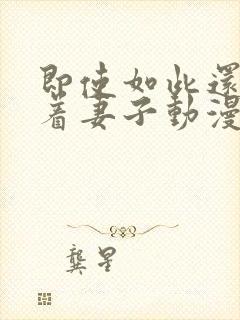 即使如此還
着妻子動漫
龔星